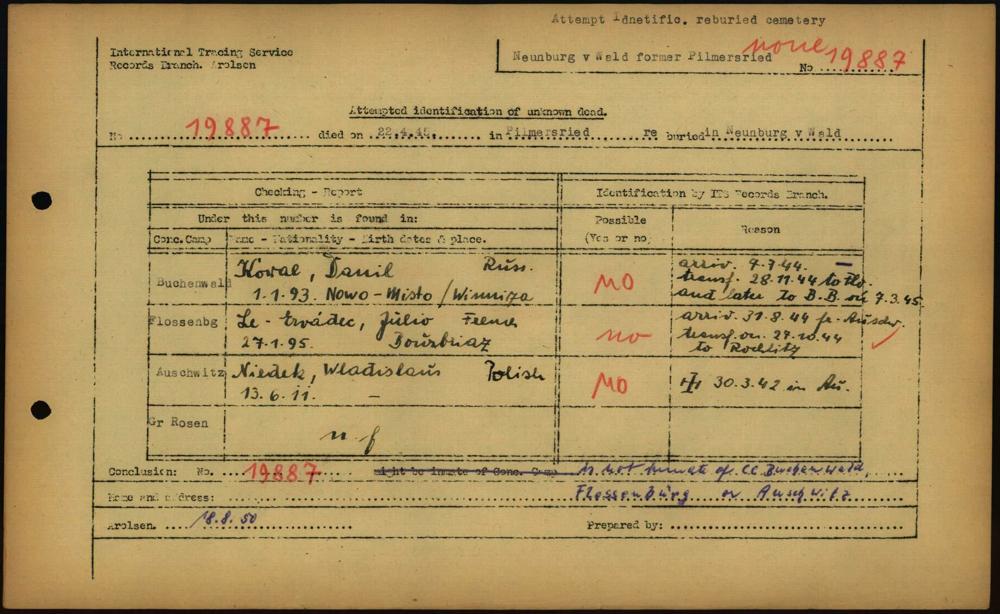 Attempt Idnetific. reburied cemetery
International Tracing Service
Records Branch. Arolsen
Neunburg v Wald former Pilmersried
none
No 19887
Attempted identification of unknown dead.
No 19887 died on 22.4.45. in Pilmersried re buried in Neunburg v Wald
Checking - Report
Identification by ITS Records Branch.
Under this number is found in:
Possible
(Yes or no)
Reason
Conc. Camp Name - Nationality - Birth dates & place.
Buchenwald
Kowal, Danil Russ.
1.1.93. Nowo-Misto / Winniza
NO
arriv. 9.7.44.
transf. 28.11.44 to
and later to B.B. on 7.3.45.
Flossenbg
Júlio
27.1.95.
no
arriv. 31.8.44 fr. Auschw.
transf. on. 27.10.44
to
Auschwitz
Niedek, Wladislaus Polish
13.6.11. -
NO
30.3.42 in Au.
Gr Rosen
n.f
Conclusion: No. 19887 might be inmate of Conc. Camp is not inmate of CC Buchenwald,
Name and address: Flossenbürg or Auschwitz
Arolsen. 18.8.50 Prepared by: